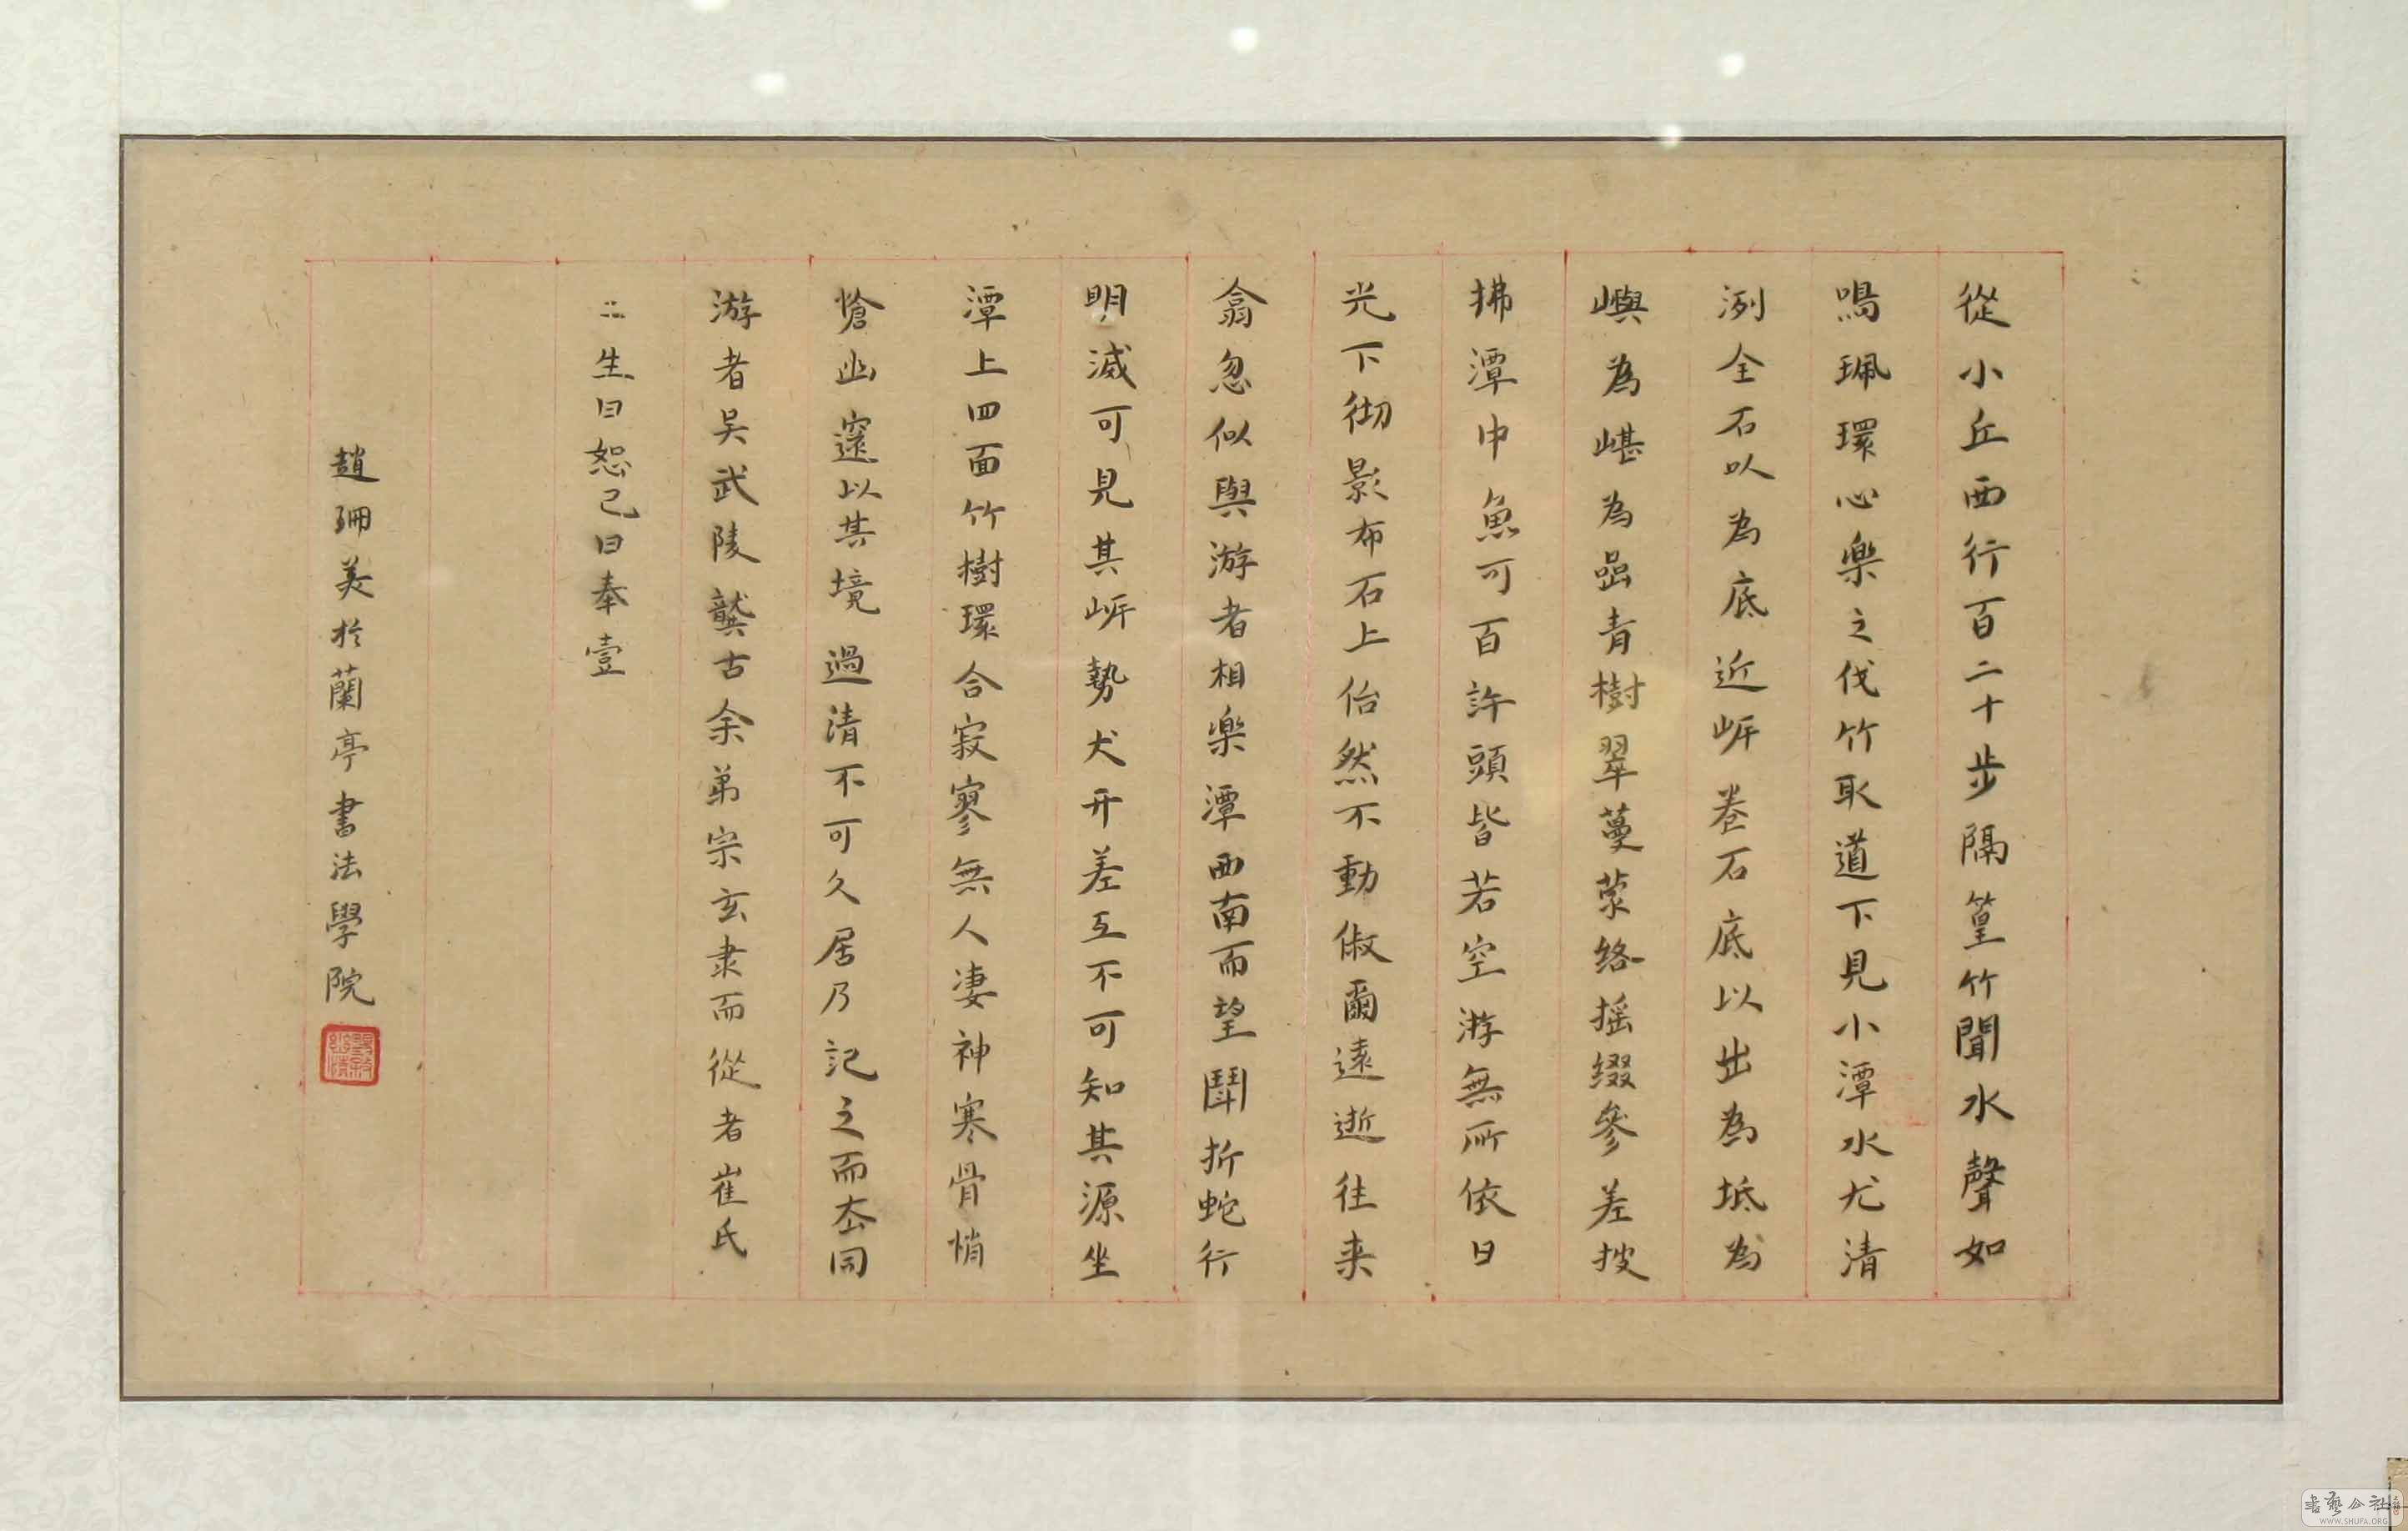 從小丘西行百二十步隔篁竹聞水聲如
鳴珮環心樂之伐竹取道下見小潭水尤清
洌全石以為底近岓卷石底以出為坻為
嶼為嵁為嵒青樹翠蔓蒙絡揺綴參差披
拂潭中魚可百許頭皆若空游無所依日
光下徹影布石上佁然不動俶爾遠逝往来
翕忽似與游者相樂潭西南而望鬪折蛇行
明滅可見其岓勢犬牙差互不可知其源坐
潭上四面竹樹環合寂寥無人凄神寒骨悄
愴幽邃以其境過清不可久居乃記之而去同
游者吴武陵龔古余弟宗玄隶而從者崔氏
二小生曰恕己曰奉壹
趙珊美於蘭亭書法學院
書藝公社
WWW.SHUFA.ORG